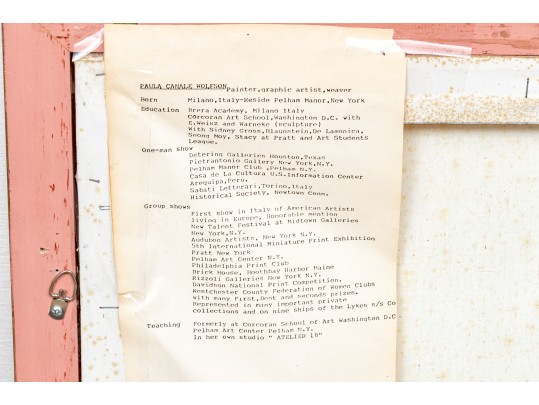 PAULA CAMALE WOLFSON, Painter, graphic artist, weaver
Born Milano, Italy-Reside Pelham Manor, New York
Education Brera Academy, Milano Italy
Corcoran Art School, Washington D.C. with
E.Weisz and Warneke (sculpture)
With Sidney Gross, Blaunstein, De Lamonica,
Seong Moy, Stacy at Pratt and Art Students
League.
One-man show
Detering Galleries Houston, Texas
Pietrantonio Gallery New York, N.Y.
Pelham Manor Club, Pelham N.Y.
Casa de La Cultura U.S. Information Center
Arequipa, Peru.
Sabati Letterari, Torino, Italy
Historical Society, Newtown Conn.
Group shows
First show in Italy of American Artists
living in Europe, Honorable mention
New Talent Festival at Midtown Galleries
New York, N.Y.
Audubon Artists, New York N.Y.
5th International Miniature Print Exhibition
Pratt New York
Pelham Art Center N.Y.
Philadelphia Print Club
Brick House, Boothbay Harbor Maine
Rizzoli Galleries New York N.Y.
Davidson National Print Competition.
Westchester County Federation of Women Clubs
with many First, Best and seconds prizes.
Represented in many important private
collections and on nine ships of the Lykes S/S Co
Teaching Formerly at Corcoran School of Art Washington D.C
Pelham Art Center Pelham N.Y.
In her own studio " ATELIER 18"